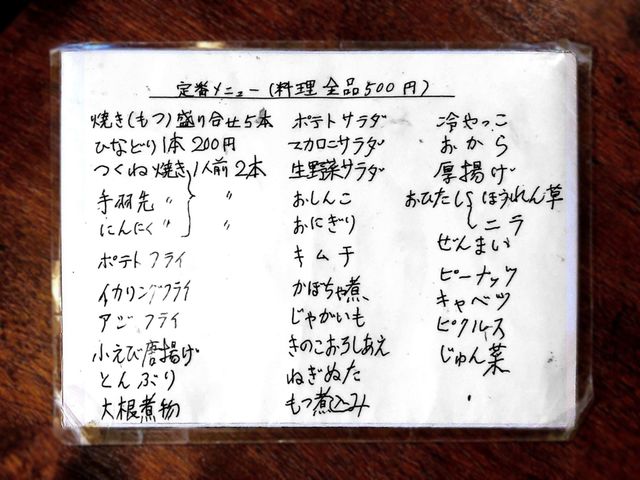 定番メニュー(料理全品500円)
焼き(もつ)盛り合せ5本
ひなどり1本200円
つくね焼き 1人前2本
手羽先 〃 〃
にんにく 〃 〃
ポテトフライ
イカリングフライ
アジフライ
小えび唐揚げ
とんぶり
大根煮物
ポテトサラダ
マカロニサラダ
生野菜サラダ
おしんこ
おにぎり
キムチ
かぼちゃ煮
じゃがいも
きのこおろしあえ
ねぎぬた
もつ煮込み
冷やっこ
おから
厚揚げ
おひたし ほうれん草
ニラ
ぜんまい
ピーナッツ
キャベツ
ピクルース
じゅん菜